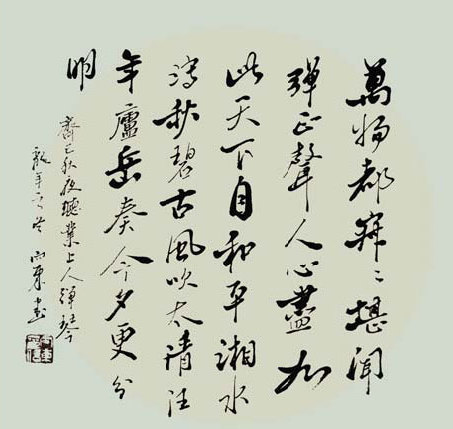 萬物都寂々堪聞
彈正聲人心盡如
此天下自和平湘水
瀉秋碧古風吹太清往
年廬岳奏今夕更分
明
齊己秋夜聽業上人彈琴
龍年 書